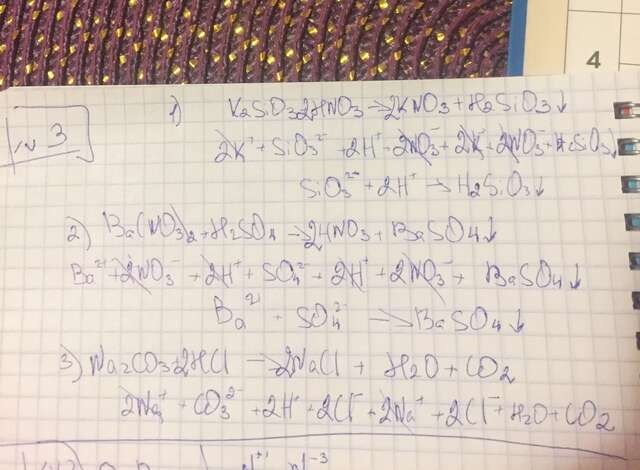 4
№3
1) K2SiO3+2HNO3→2KNO3+H2SiO3↓
2K⁺+SiO3²⁻+2H⁺+2NO3⁻+2K⁺+2NO3⁻+H2SiO3↓
SiO3²⁻+2H⁺→H2SiO3↓
2) Ba(NO3)2+H2SO4→2HNO3+BaSO4↓
Ba²⁺+2NO3⁻+2H⁺+SO4²⁻-2H⁺+2NO3⁻+BaSO4↓
Ba²⁺-SO4²⁻→BaSO4↓
3) Na2CO3+2HCl→2NaCl+H2O+CO2
2Na⁺+CO3²⁻+2H⁺+2Cl⁻+2Na⁺+2Cl⁻+H2O+CO2